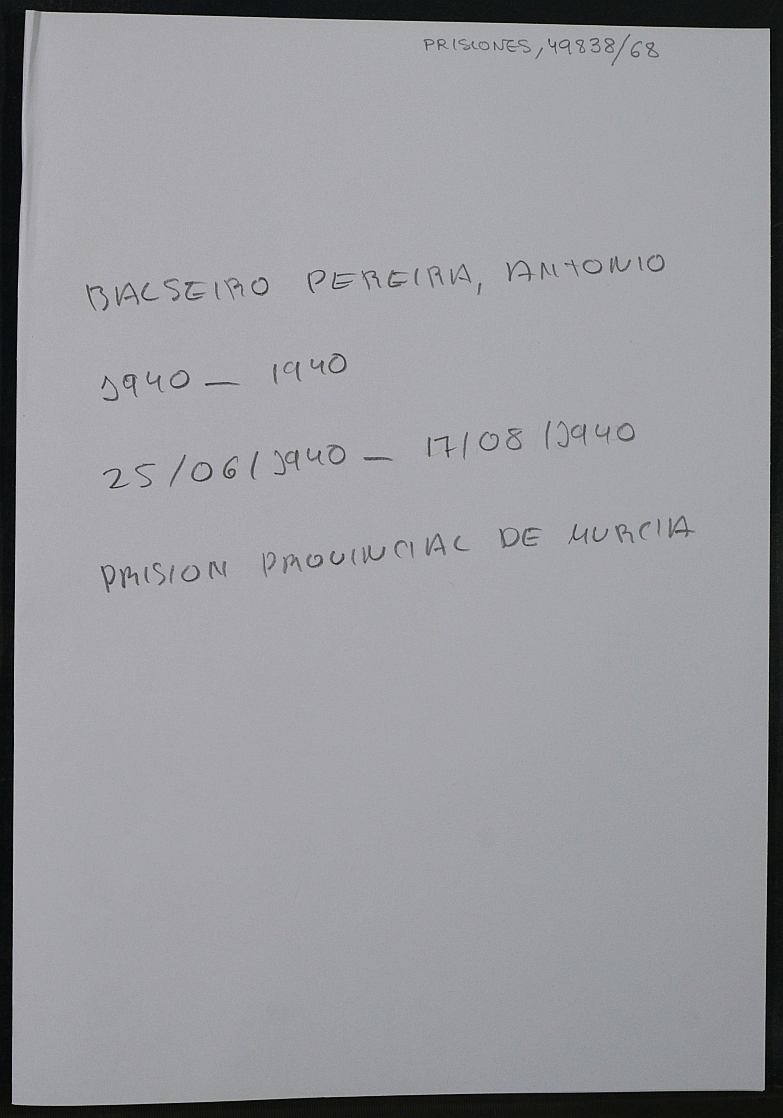 PRISIONES, 49838/68
BALSEIRO PEREIRA, ANTONIO
1940 — 1940
25/06/1940 — 17/08/1940
PRISION PROVINCIAL DE MURCIA